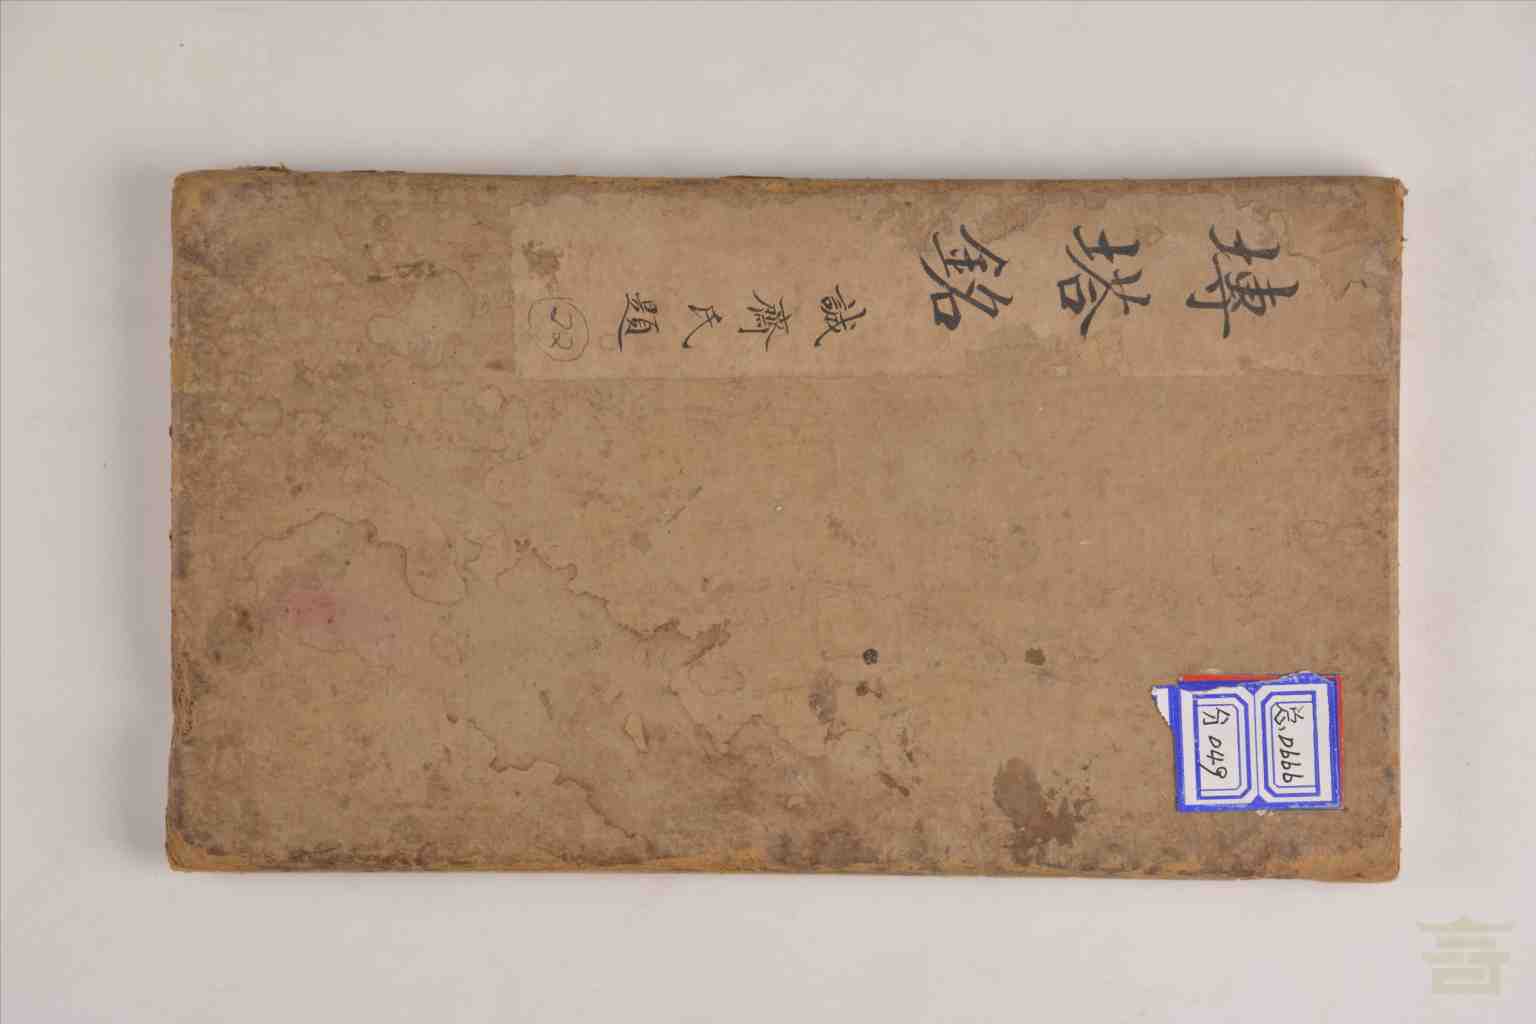 塼塔銘
誠齋氏題
22
总 0666
分 049